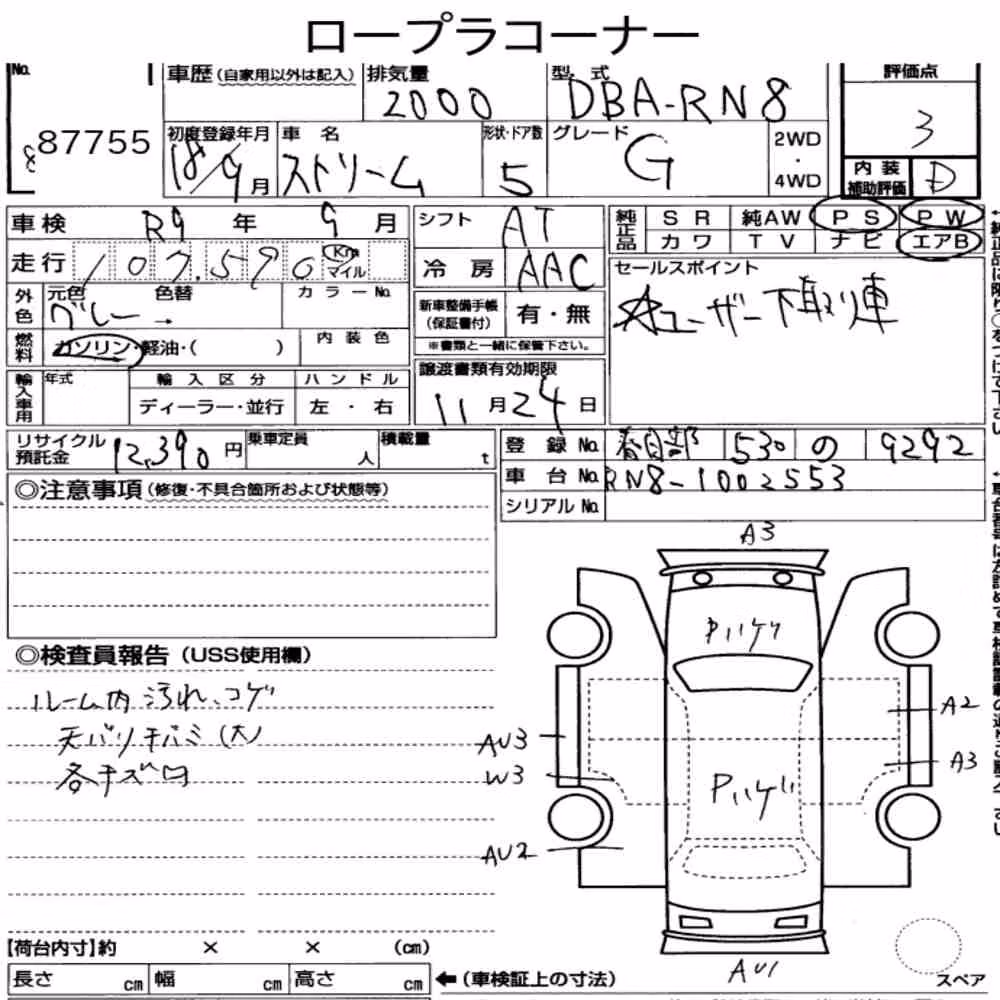 ロープラコーナー
No. 87755
車歴(自家用以外は記入)
排気量 2000
型式 DBA-RN8
評価点 3
初度登録年月 18/9月
車名 ストリーム
形状・ドア数 5
グレード G
2WD・4WD
内装補助評価 D
車検 R9年 9月
シフト AT
純正品 SR 純AW PS PW
カワ TV ナビ エアB
走行 107,590 Km マイル
冷房 AAC
セールスポイント
☆ユーザー下取り車
外色 元色 色替 カラーNo.
グレー →
新車整備手帳(保証書付) 有・無
※書類と一緒に保管下さい。
燃料 ガソリン・軽油・( )
内装色
輸入車用 年式 輸入区分 ハンドル
ディーラー・並行 左・右
譲渡書類有効期限
11月24日
リサイクル預託金 12,390円
乗車定員 人
積載量 t
登録No. 春日部 530 の 9292
車台No. RN8-1002553
シリアルNo.
◎注意事項(修復・不具合箇所および状態等)
◎検査員報告(USS使用欄)
ルーム内汚れ、コゲ
天バリ
各キズ凹
A3
A2
A3
AU3
W3
AU2
AU1
【荷台内寸】約 × × (cm)
長さ cm 幅 cm 高さ cm
←(車検証上の寸法)
スペア